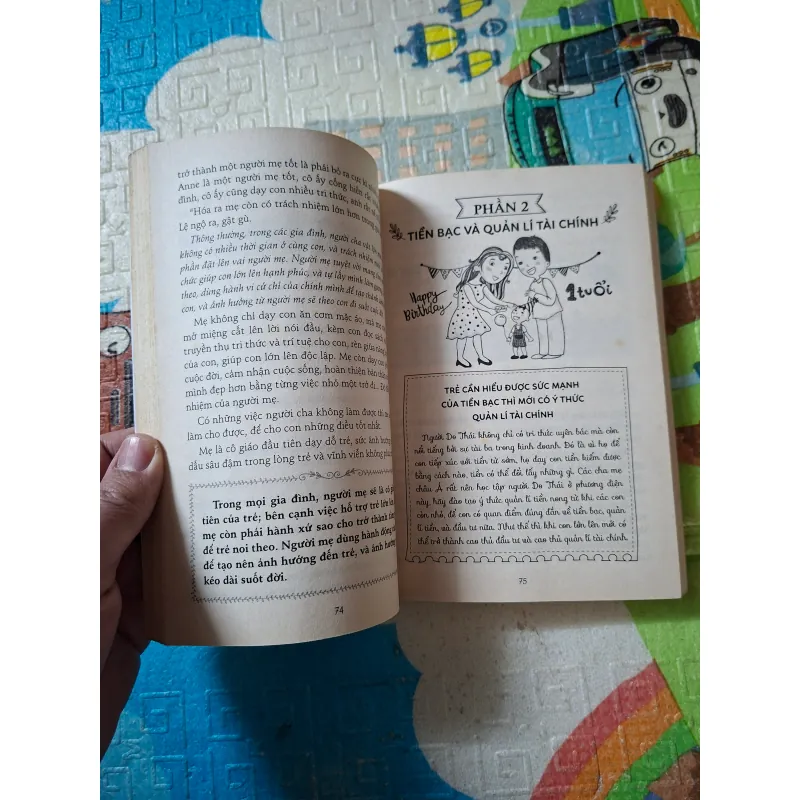 trở thành một người mẹ tốt là phải bỏ ra cực kì
Anne là một người mẹ tốt, cô ấy cống hiến rất
đình, cô ấy cũng dạy con nhiều tri thức, anh
"Hóa ra mẹ còn có trách nhiệm lớn hơn trong
Lệ ngộ ra, gật gù.
Thông thường, trong các gia đình, người cha vất
không có nhiều thời gian ở cùng con, và trách nhiệm
phần đặt lên vai mẹ. Người mẹ tuyệt vời mang
chức giúp con lớn lên hạnh phúc, và tự lấy mình làm
theo, dùng hành vi cử chỉ của chính mình để tạo
con, và ảnh hưởng từ người mẹ sẽ theo con đi suốt
Mẹ không chỉ dạy con ăn cơm mặc áo, mà
mở miệng cất lên lời nói đầu, kèm con đọc sách
truyền thụ tri thức và trí tuệ cho con, rèn giũa
của con, giúp con lớn lên độc lập. Mẹ còn dạy con
cuộc đời, cảm nhận cuộc sống, hoàn thiện bản thân
mình đẹp hơn bằng từng việc nhỏ một trở đi...
nhiệm của người mẹ.
Có những việc người cha không làm được thì
làm cho được, để cho con những điều tốt nhất.
Mẹ là cô giáo đầu tiên dạy dỗ trẻ, sức ảnh hưởng
dấu sâu đậm trong lòng trẻ và vĩnh viễn không
Trong mọi gia đình, người mẹ sẽ là cô
tiên của trẻ; bên cạnh việc hỗ trợ trẻ lớn lên,
mẹ còn phải hành xử sao cho trở thành
để trẻ noi theo. Người mẹ dùng hành động
để tạo nên ảnh hưởng đến trẻ, và ảnh hưởng
kéo dài suốt đời.
74
PHẦN 2
TIỀN BẠC VÀ QUẢN LÍ TÀI CHÍNH
Happy
Birthday
1 tuổi
TRẺ CẦN HIỂU ĐƯỢC SỨC MẠNH
CỦA TIỀN BẠC THÌ MỚI CÓ Ý THỨC
QUẢN LÍ TÀI CHÍNH
Người Do Thái không chỉ có tri thức uyên bác mà còn
nổi tiếng bởi sự tài ba trong kinh doanh. Đó là vì họ để
con tiếp xúc với tiền từ sớm, họ dạy con tiền kiếm được
bằng cách nào, tiền có thể đổi lấy những gì. Các cha mẹ
châu Á rất nên học tập người Do Thái ở phương diện
này, hãy đào tạo ý thức quản lí tiền nong từ khi các con
còn nhỏ, để con có quan điểm đúng đắn về tiền bạc, quản
lí tiền, và đầu tư nữa. Như thế thì khi con lớn lên mới có
thể trở thành cao thủ đầu tư và cao thủ quản lí tài chính.
75